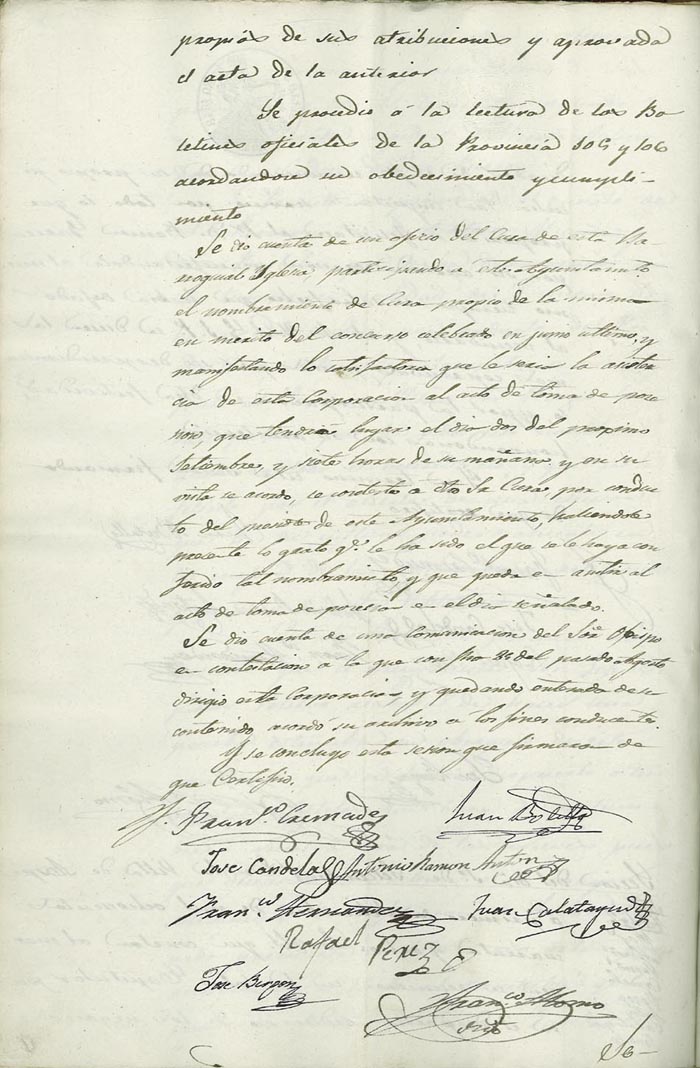 propios de sus atribuciones y aprovada
el acta de la anterior
Se procedio á la lectura de los Bo
letines oficiales de la Provincia 105 y 106
acordandose su obedecimiento y cumpli-
miento
Se dio cuenta de un oficio del Cura de esta Pa
rroquial Yglesia participando a este Ayuntamto.
el nombramiento de Cura propio de la misma
en merito del concurso celebrado en junio ultimo, y
manifestando lo satisfactorio que le seria la asisten
cia de esta Corporacion al acto de toma de pose
sion, que tendrá lugar el dia dos del proximo
Setiembre, y siete horas de su mañana y en su
vista se acordo, se conteste a dho Sr Cura, por conduc
to del presidte de este Ayuntamiento, haciendole
presente lo grato qe. le ha sido el que se le haya con
ferido tal nombramiento, y que queda en asistir al
acto de toma de posesion en el dia señalado.
Se dio cuenta de una comunicacion del Sor Obispo
en contestacion a la que con fha 25 del pasado Agosto
dirigio esta Corporacion, y quedando enterada de su
contenido, acordó su archivo a los fines conducentes.
Y se concluyo esta sesion que firmaron de
que Certifico.
Franco. Cremades
Juan
Jose Candela
Antonio Ramon Anton
Franco. Hernandez
Juan Calatayud
Rafael Perez
Jose
Franco
Srio
Se-